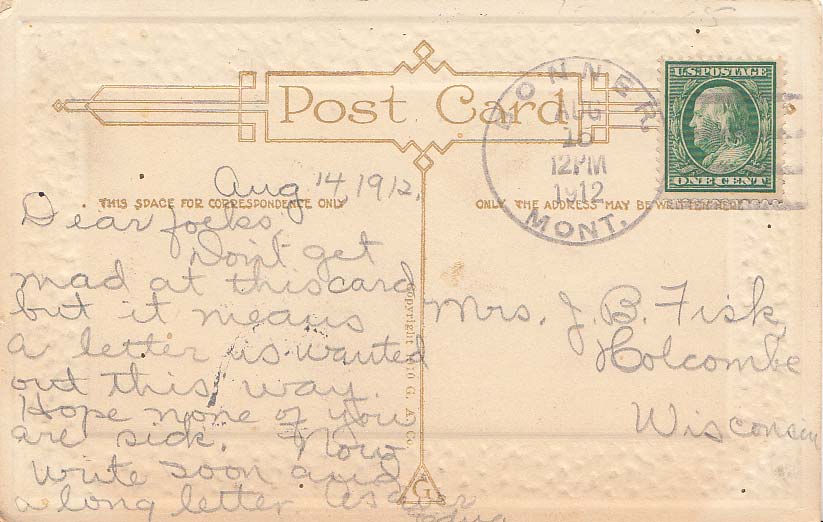 Post Card
BONNER
AUG
15
12PM
1912
MONT.
U.S. POSTAGE
ONE CENT
THIS SPACE FOR CORRESPONDENCE ONLY
ONLY THE ADDRESS MAY BE WRITTEN HERE
Aug 14, 1912.
Dear folks,
Don't get
mad at this card
but it means
a letter is wanted
out this way.
Hope none of you
are sick. Now
write soon and
a long letter As ever
Mrs. J. B. Fisk
Holcombe
Wisconsin
Copyright 1910 G. A. Co.
G